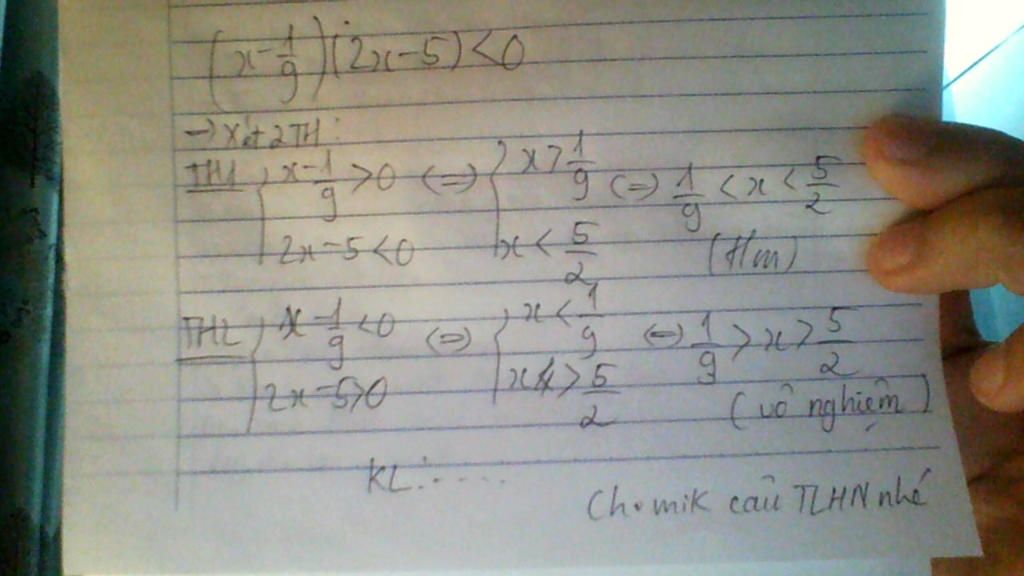 (x - 1/9)(2x - 5) < 0
→ Xét 2TH:
TH1 { x - 1/9 > 0 <=> { x > 1/9 <=> 1/9 < x < 5/2
2x - 5 < 0 x < 5/2 (t/m)
TH2 { x - 1/9 < 0 <=> { x < 1/9 <=> 1/9 > x > 5/2
2x - 5 > 0 x > 5/2 (vô nghiệm)
KL: .....
Cho mik câu TLHN nhé